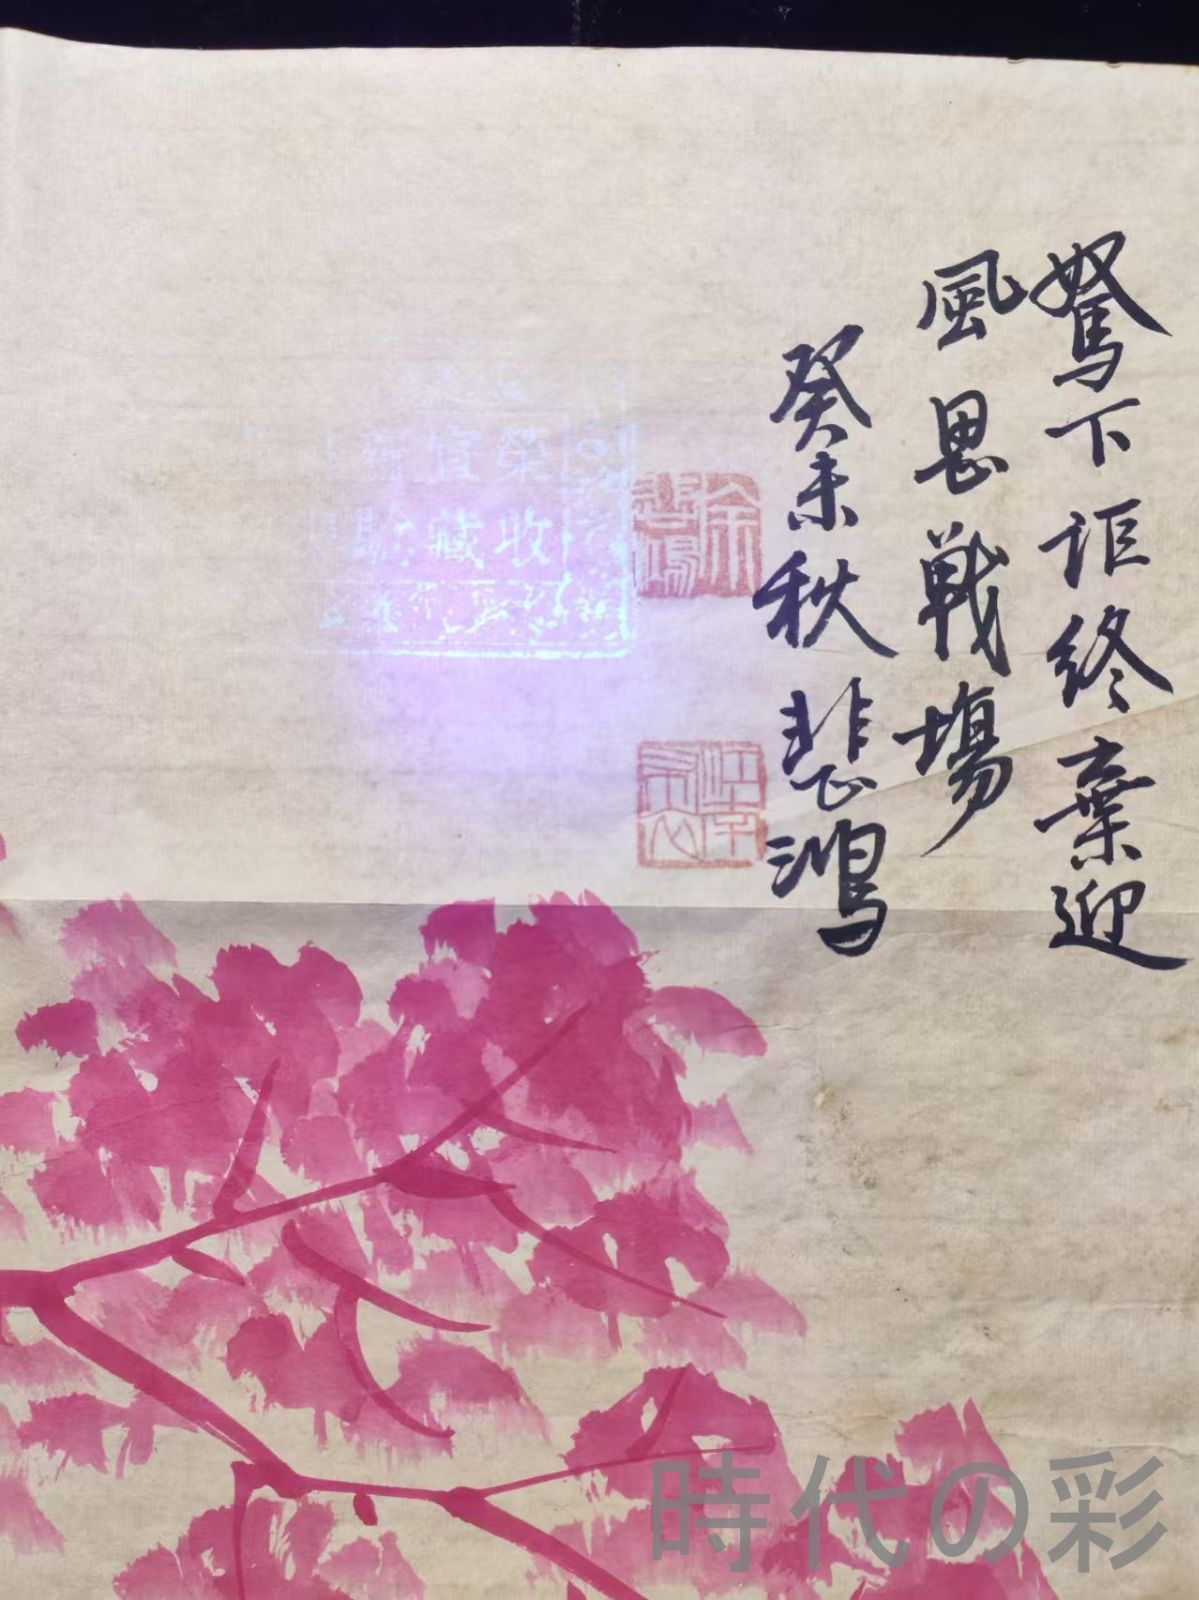 駑下詎終棄迎
風思戰場
癸未秋 悲鴻
徐悲鴻
江南
榮宜齋
收藏驗
時代の彩